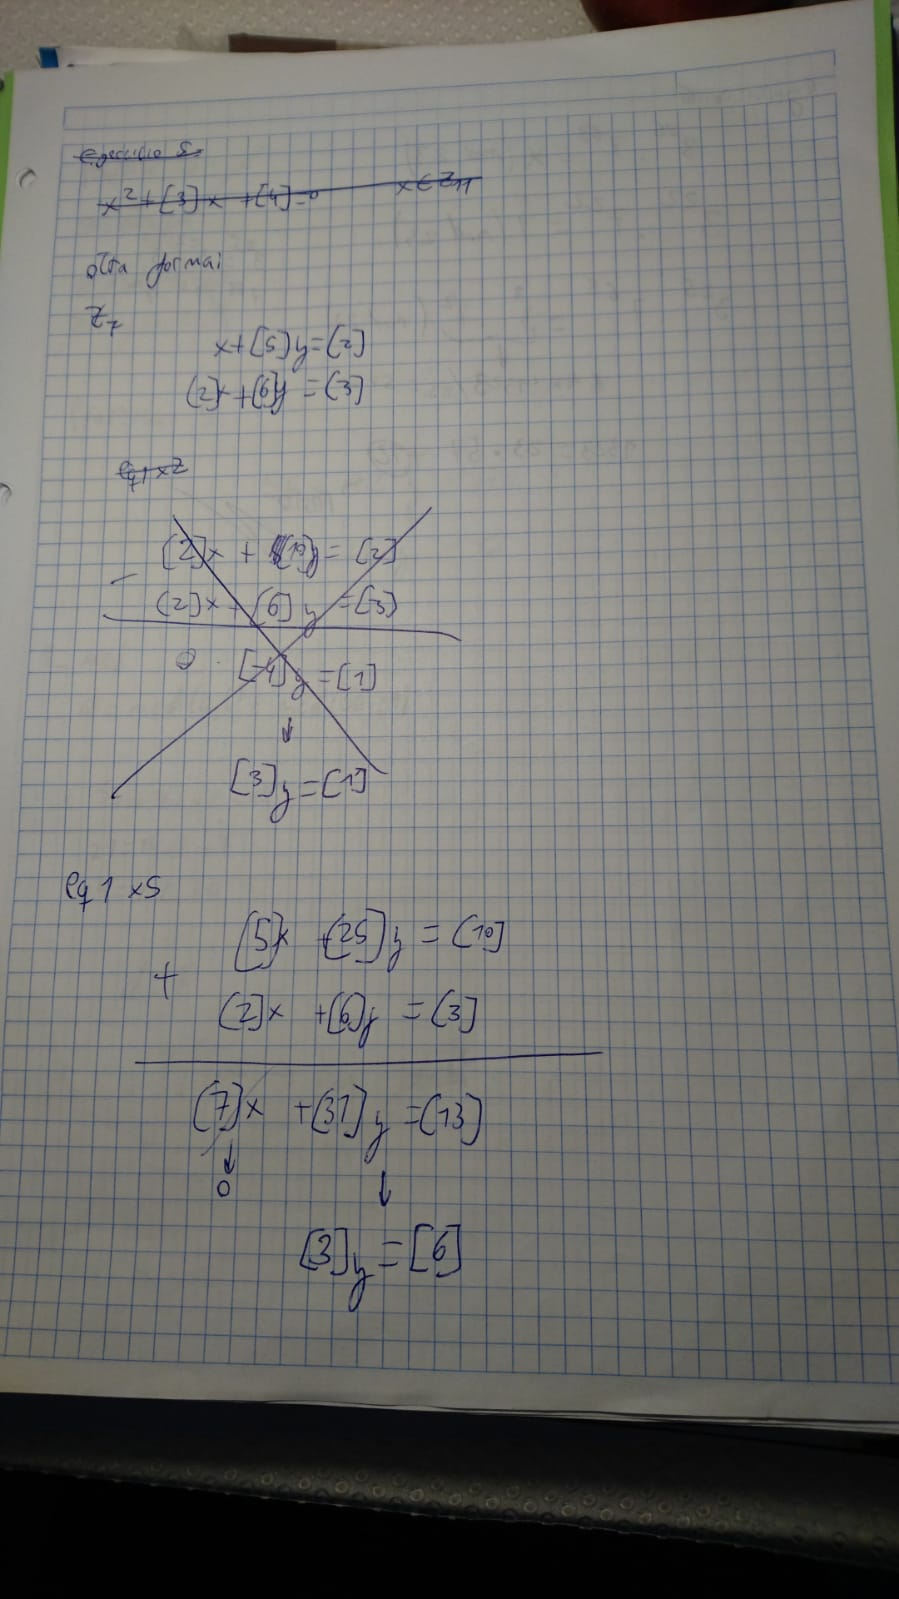 Ejercicio 5
x² + [3]x + [4] = 0 x ∈ Z₁₁
otra forma:
Z₇
x + [5]y = [2]
[2]x + [6]y = [3]
Eq 1 x2
[2]x + [10]y = [2]
-
[2]x + [6]y = [3]
0 [-4]y = [1]
↓
[3]y = [1]
Eq 1 x5
[5]x + [25]y = [10]
+
[2]x + [6]y = [3]
[7]x + [31]y = [13]
↓
0
↓
[3]y = [6]